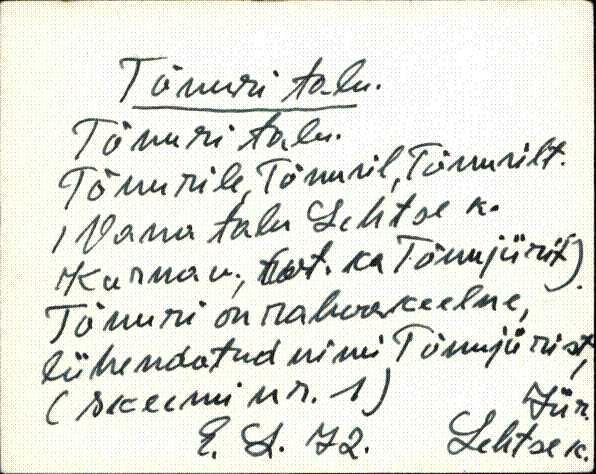 Tõnuri talu.
Tõnuri talu.
Tõnurile, Tõnuril, Tõnurilt.
1 Vana talu Lehtse k.
Kurnav, (vt. ka Tõnujürit).
Tõnuri on rahvakeelne,
lühendatud nimi Tõnujürist,
(skeemi nr. 1) Jür.
E. L. 72. Lehtse k.